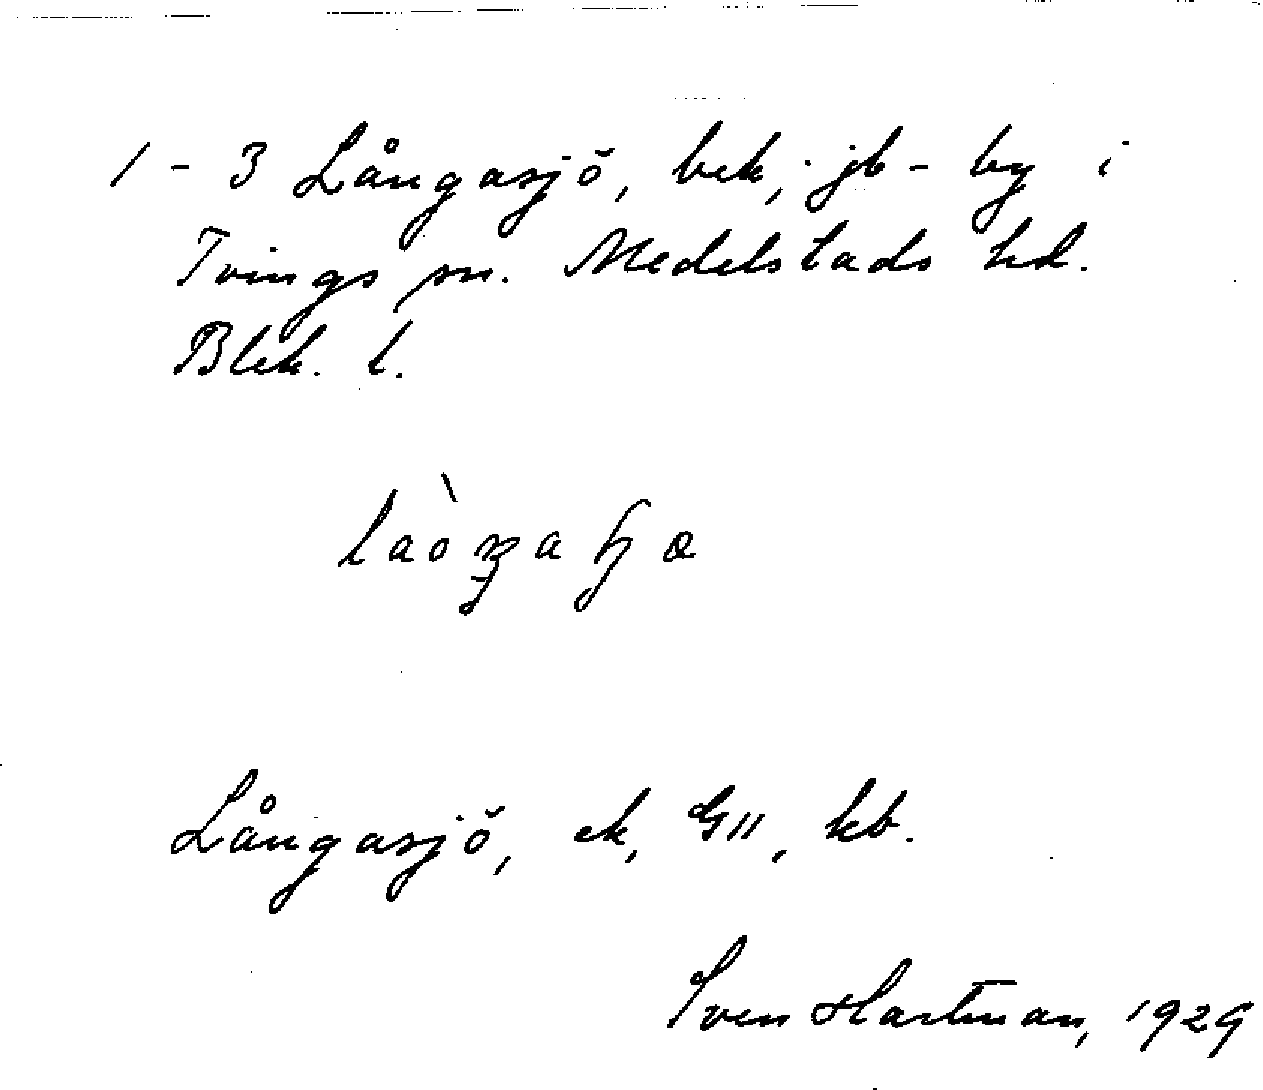 1 - 3 Långasjö, bek, jb - by i
Tvings sn. Medelstads hd.
Blek. l.
Långasjö, ek, GII, kb.
Sven Hartman, 1929